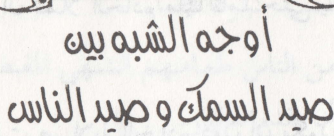 أوجه الشبه بين
صيد السمك وصيد الناس